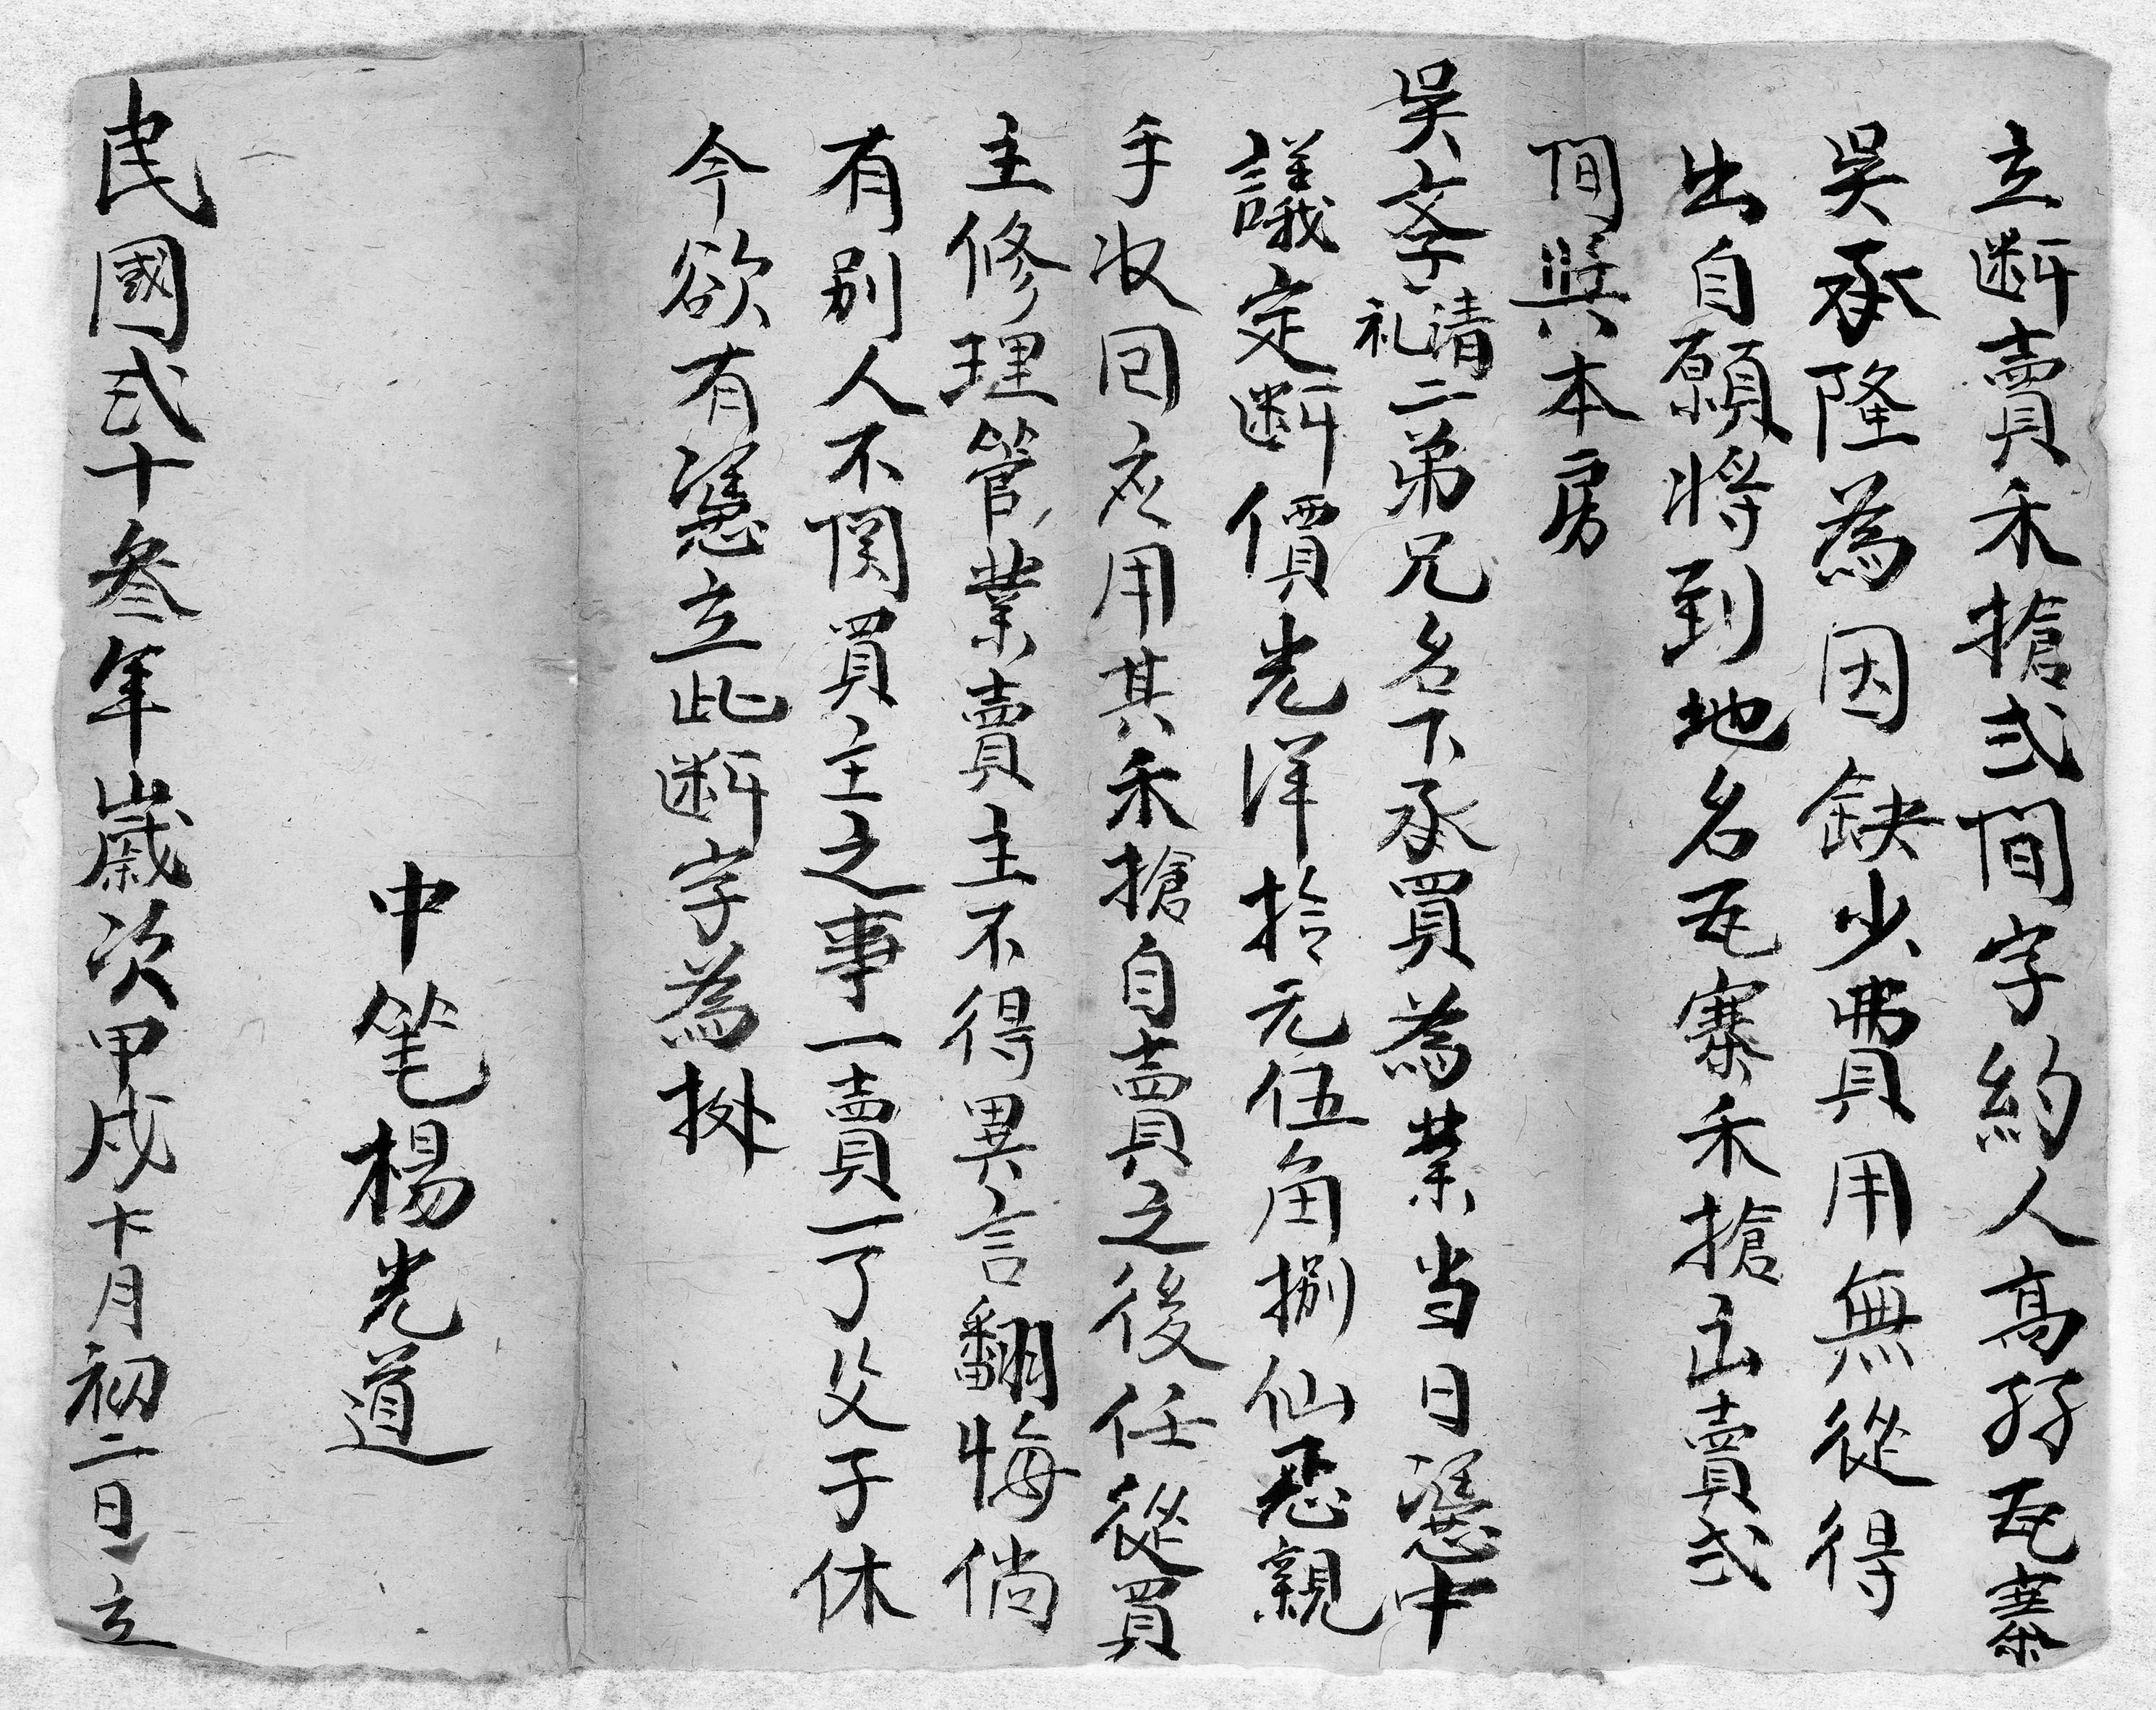 立断賣禾搶弍间字約人高孖瓦寨
吳承隆為因缺少費用無從得
出自願將到地名瓦寨禾搶出賣弍
间與本房
吳文孝清礼二弟兄名下承買為業当日憑中
議定断價光洋拾元伍角捌仙悉親
手收囘应用其禾搶自賣之後任從買
主修理管業賣主不得異言翻悔倘
有别人不関買主之事一賣一了父子休
今欲有憑立此断字為挩
中笔楊光道
民國弍十叁年歲次甲戌十月初二日立